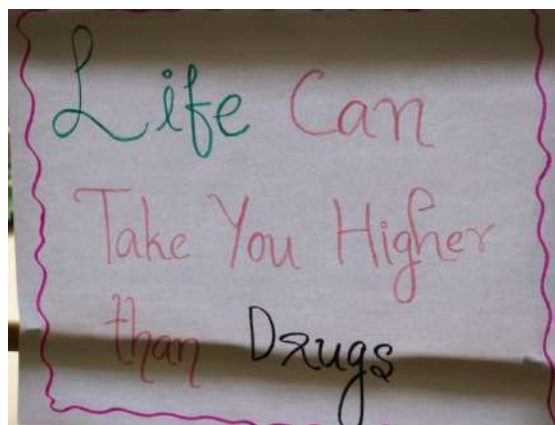 Life Can
Take You Higher
than Drugs